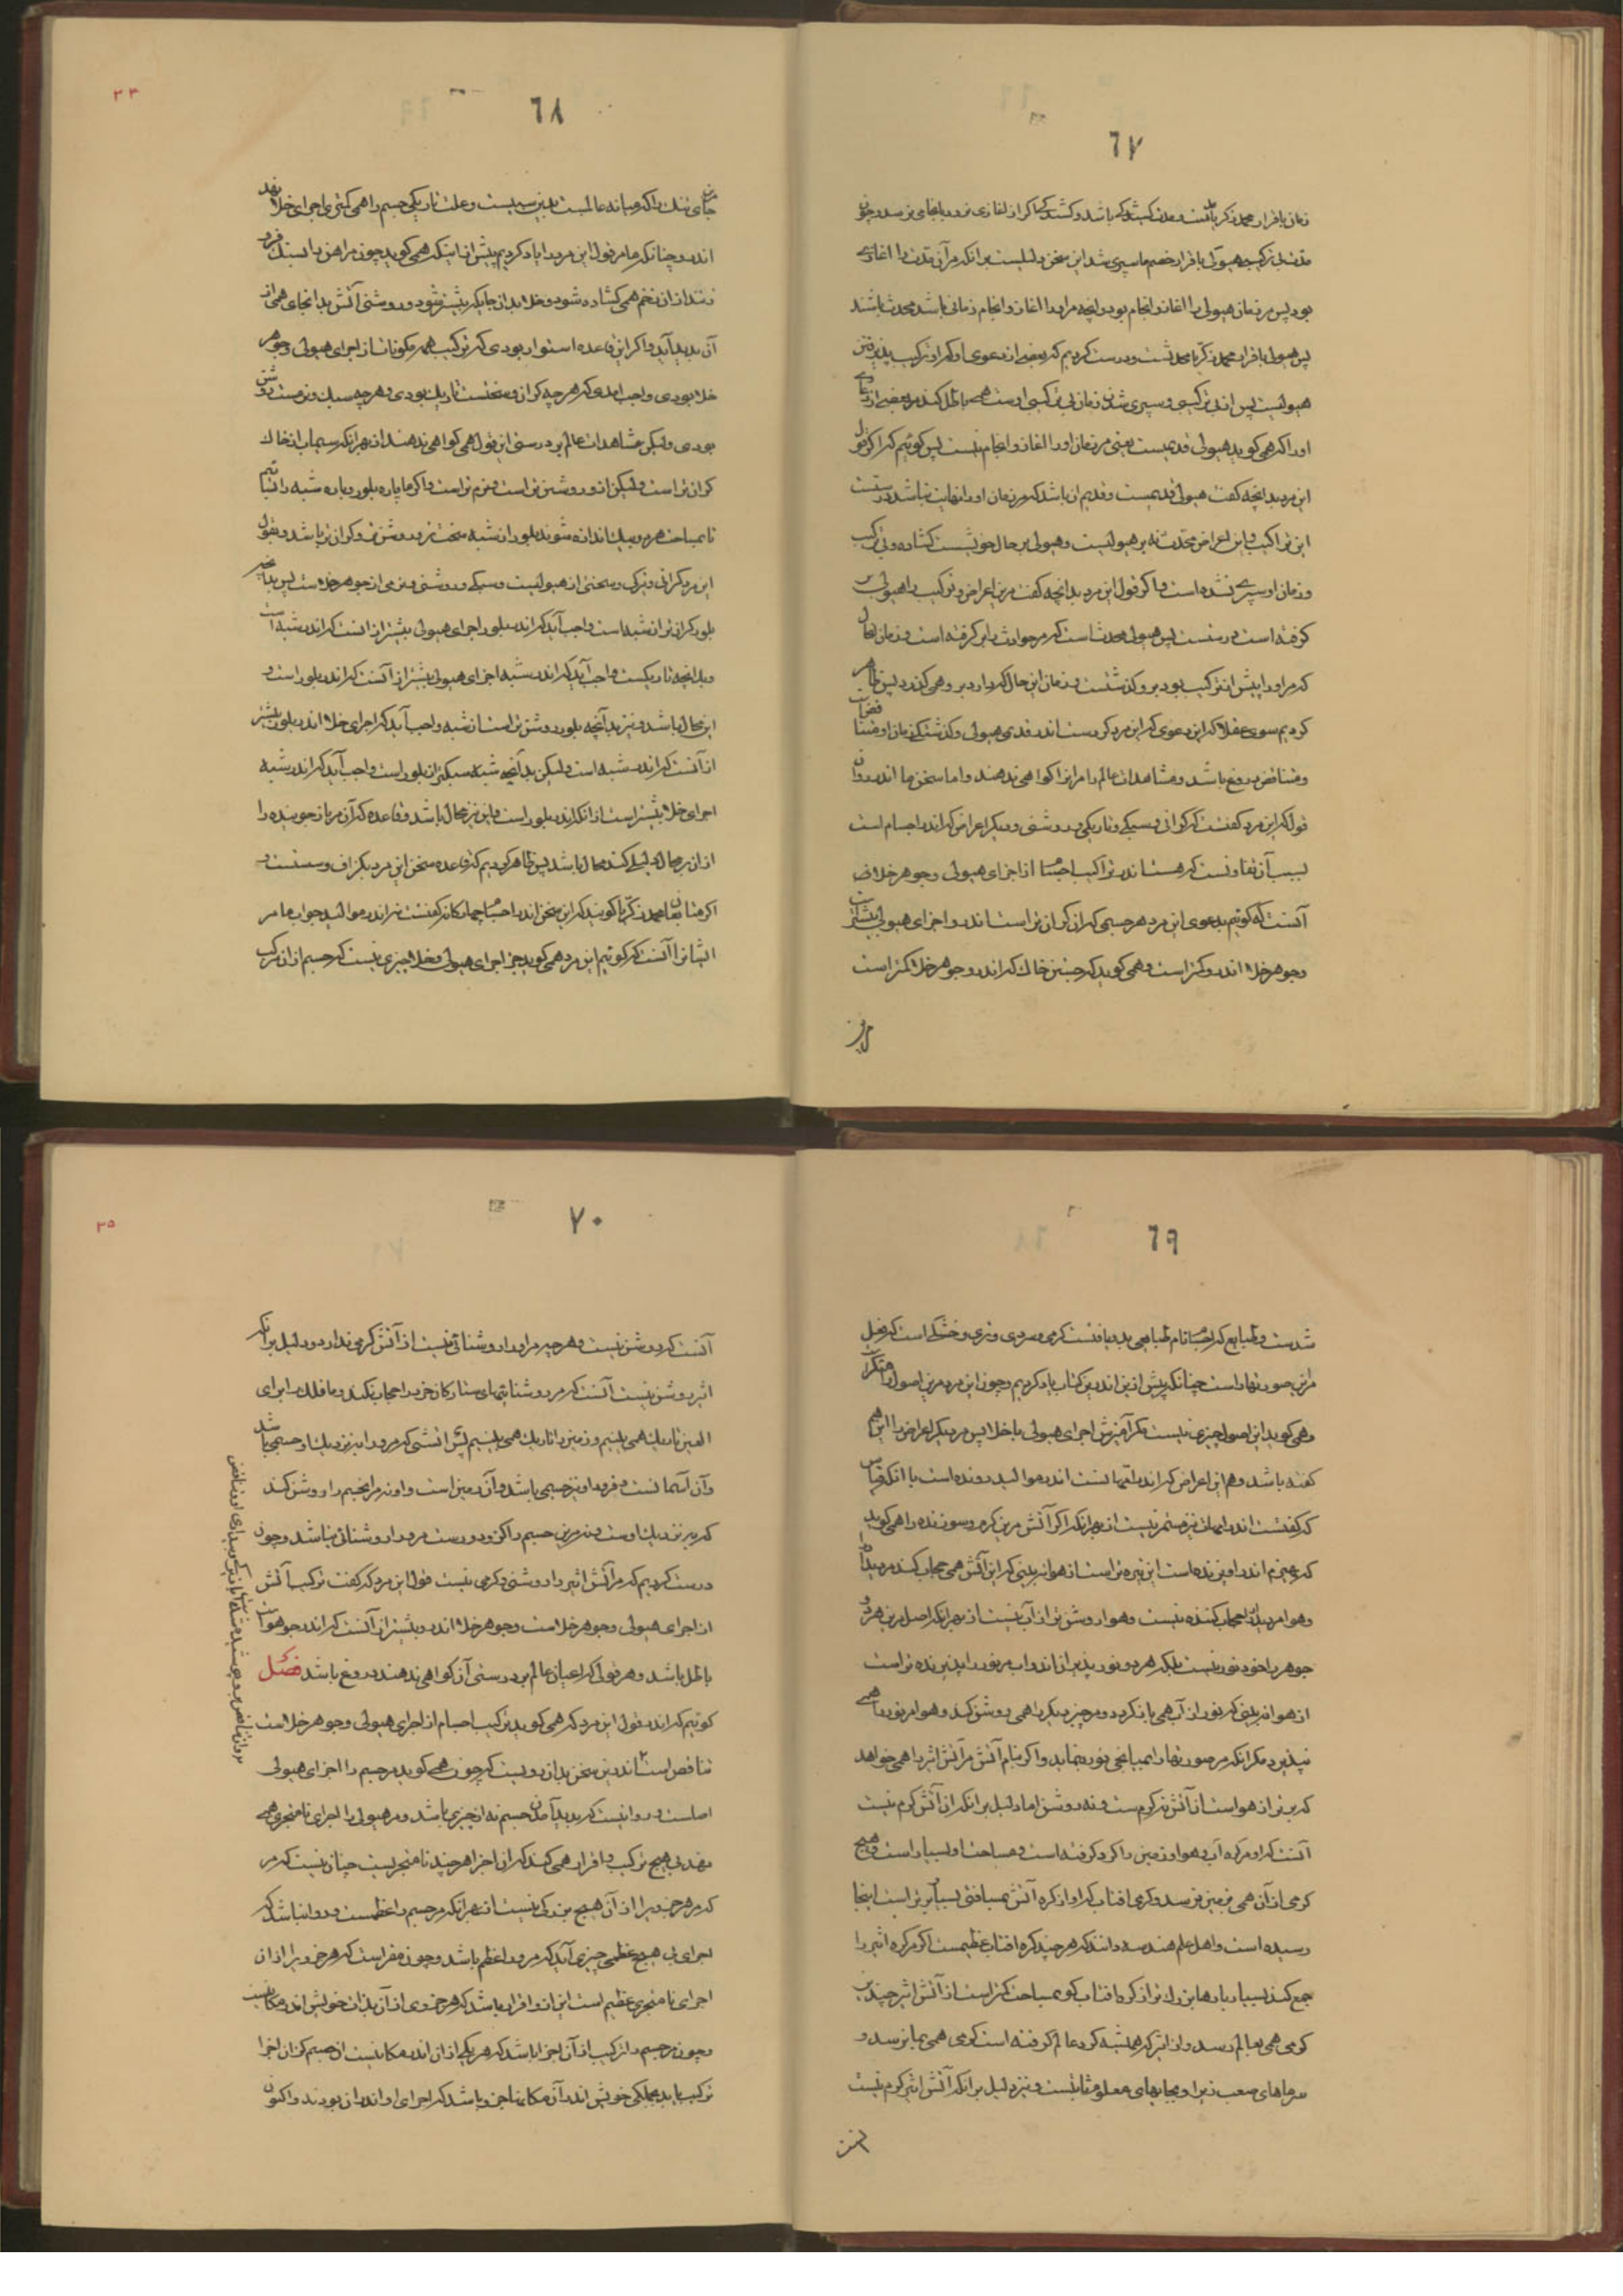 ٦٧
زمان باقرار محمد زکریا
مدت بی ترکیبی هیولی باقرار خصم ما سپری شد این سخن دلیلست بر آنکه مر آن مدت را آغازی
بود پس مر زمان هیولی را آغاز و انجام بود و آنچه مر او را آغاز و انجام زمانی باشد محدث باشد
پس هیولی باقرار محمد زکریا محدثست و درست کردیم که بعضی از دعوی او که اندر ترکیب پذیرفتن
هیولیست پس از بی ترکیبی و سپری شدن زمان بی ترکیبی اوست همی باطل کند مر بعضی از دعاوی
او را که همی گوید هیولی قدیمست یعنی مر زمان او را آغاز و انجام نیست پس گوئیم که اگر قول
این مرد بدانچه گفت هیولی قدیمست و قدیم آن باشد که مر زمان او را نهایت نباشد درستست
این تراکیب و این اعراض محدث نه بر هیولیست و هیولی بر حال خویشست گشاده و بی ترکیب
و زمان او سپری نشده است و اگر قول این مرد بدانچه گفت مر این اعراض و ترکیب را هیولی بر
گرفته است درستست پس هیولی محدثست که مر حوادث را برگرفته است و زمان حال
که مر او را پیش از ترکیب بود بر و گذشتست و زمان این حال که دارد بر و همی گذرد پس ظاهر
کردیم سوی عقلا که این دعوی که این مرد کردست اندر قدیمی هیولی و گذشتگی زمان او متناقضست
و متناقض دروغ باشد و مشاهدات عالم را مر این را گواهی ندهند و اما سخن ما اندر روا
قول که این مرد گفتست که گرانی و سبکی و تاریکی و روشنی و دیگر اعراض که اندر اجسام است
بسبب آن تفاوتست که هست اندر تراکیب اجسام از اجزای هیولی و جوهر خلا
آنست که گوئیم بدعوی این مرد هر جسمی که آن گران تر است اندر و اجزای هیولی بیشتر است
و جوهر خلا اندر و کمتر است و همی گوید که جسمی خاک که اندر و جوهر خلا کمتر است
٦٨
٣٤
جای تنگ را که میانه عالمست بدین سببست و علت تاریکی جسم را همی کمتری اجزای خلا نهد
اندر و چنانکه ما مر قول این مرد را یاد کردیم پیش از اینکه همی گوید چون مر آهن را بسنگ فرو
زنند از آن زخم همی گشاده شود و خلا بدان جایگه بیشتر شود و روشنی آتش بدانجای همی از
آن پدید آید و اگر این قاعده استوار بودی که ترکیب همه مکونات از اجزای هیولی و جوهر
خلا بودی واجب آمدی که هرچه گران و سختست تاریک بودی و هرچه سبک و نرمست روشن
بودی ولیکن مشاهدات عالم بر درستی این قول همی گواهی ندهند از بهر آنکه سیماب از خاک
گران تر است ولیکن از و روشن تر است و نرم تر است و اگر ما پاره بلور و پاره شبه را بتراشیم
تا بمساحت هر دو یک اندازه شوند بلور از شبه سخت تر و روشن تر و گران تر باشد و بقول
این مرد گرانی و تیرگی و سختی از هیولیست و سبکی و روشنی و نرمی از جوهر خلاست پس بدانچه
بلور گران تر از شبه است واجب آید که اندر بلور اجزای هیولی بیشتر از آنست که اندر شبه است
و بدانچه تاریکست واجب آید که اندر شبه اجزای هیولی بیشتر از آنست که اندر بلور است و
این محال باشد و نیز بدانچه بلور روشن تر است از شبه واجب آید که اجزای خلا اندر بلور بیشتر
از آنست که اندر شبه است ولیکن بدانچه شبه سبکتر از بلور است واجب آید که اندر شبه
اجزای خلا بیشتر است از آنکه اندر بلور است و این نیز محال باشد و قاعده که آن مر باز جوینده را
از آن بر محال دلیلی کند محال باشد پس ظاهر کردیم که قاعده سخن این مرد بگزاف و سستست و
اگر متابعان محمد زکریا گویند که این سخن اندر اجسام چهارگانه گفتست نه اندر موالید جواب ما مر
ایشانرا آنست که گوئیم این مرد همی گوید جز اجزای هیولی و خلا چیزی نیست که جسم از آن مرکب
٦٩
شدست و طبایع که اجسام نام طبایعی بدو یافتست گرمی و سردی و تری و خشکی است که فعل
مر این صورتها راست چنانکه پیش ازین اندرین کتاب یاد کردیم و چون این مرد مر این اصول را منکرست
و همی گوید این اصول چیزی نیست مگر آمیزش اجزای هیولی با خلا پس مر دیگر اعراض را این هم
گفته باشد و هم این اعراض که اندر امهاتست اندر موالید رونده است با آنکه قیاس
که گفتست اندر امهات نیز مستمر نیست از بهر آنکه اگر آتش مر این گرم و سوزنده را همی گوید
که هیزم اندر آویزنده است این تیره تر است از هوا نبینی که این آتش همی حجاب کند مر دیدار
و هوا مر دیدار را حجاب کننده نیست و هوا روشن تر از آب نیست از بهر آنکه اصل مر این هر دو
جوهر را خود نور نیست بلکه هر دو نور پذیرانند و آب مر نور را پذیرنده تر است
از هوا نبینی که نور از آب همی باز گردد و مر چیز دیگر را همی روشن کند و هوا مر نور را همی
نپذیرد مگر آنکه مر صورتها را بمیانجی نور بنماید و اگر بنام آتش مر آتش اثیر را همی خواهد
که برتر از هواست آن آتش نه گرمست و نه روشن اما دلیل بر آنکه آن آتش گرم نیست
آنست که او مر کره آب و هوا و زمین را گرد گرفته است و مساحت او بسیار است و هیچ
گرمی از آن همی بزمین نرسد و گرمی آفتاب که او از کره آتش بمسافتی بسیار برتر است اینجا
رسیده است و اهل علم هندسه دانند که هرچند کره آفتاب عظیمست اگر مر کره اثیر را
جمع کنند بسیار بارها بزرگ تر از کره آفتاب گو بمساحت کمتر است از آتش اثیر چندین
گرمی همی بعالم رسد و از اثیر که همیشه گرد عالم گرفته است گرمی همی بما نرسد و
سرماهای صعب زیر او بجایهای معلوم ثابتست و نیز دلیل بر آنکه آتش اثیر گرم نیست
آنست
٧٠
٣٥
آنست که روشن نیست و هر چیز مر او را روشنائی نیست از آتش گرمی ندارد و دلیل بر آنکه
اثیر روشن نیست آنست که مر روشنائیهای ستارگان خرد را حجاب نکند و ما فلک را برای
العین تاریک همی بینیم و زمین را تاریک همی بینیم پس آتشی که مر و را برتر نزدیک او جسمی باشد
و آن آسمانست و فرود او نیز جسمی باشد و آن زمین است و او نه مر آن جسم را روشن کند
که بر نزدیک اوست و نه مر این جسم را کز و دورست مر و را روشنائی نباشد و چون
درست کردیم که مر آتش اثیر را روشنی و گرمی نیست قول این مرد که گفت ترکیب آتش
از اجزای هیولی و جوهر خلاست و جوهر خلا اندر و بیشتر از آنست که اندر جوهر هواست
باطل باشد و هر قولی که اعیان عالم بر درستی آن گواهی ندهند دروغ باشد فصل
گوئیم که اندر قول این مرد که همی گوید ترکیب اجسام از اجزای هیولی و جوهر خلاست
تناقض است اندرین سخن بدان رویست که چون همی گوید مر جسم را اجزای هیولی
اصلست و روا نیست که پدید آمدن جسم نه از چیزی باشد و مر هیولی را اجزای نامتجزی همی
نهد بی هیچ ترکیب و اقرار همی کند که آن اجزا هرچند نامتجزیست چنان نیست که مر
که مر هر جزوی را از آن هیچ بزرگی نیست از بهر آنکه مر جسم را عظمست و روا نباشد که
اجزای بی هیچ عظمی چیزی آید که مر و را عظم باشد و چون مقر است که هر جزوی را از آن
اجزای نامتجزی عظیم است این از و اقرار باشد که هر جزوی از آن بذات خویش اندر مکانیست
و چون مر جسم را ترکیب از آن اجزا باشد که هر یکی از آن اندر مکانیست آن جسم کز آن اجزا
ترکیب یابد بجملگی خویش اندر آن مکانها جزو باشد که اجزای او اندر آن بودند و اکنون